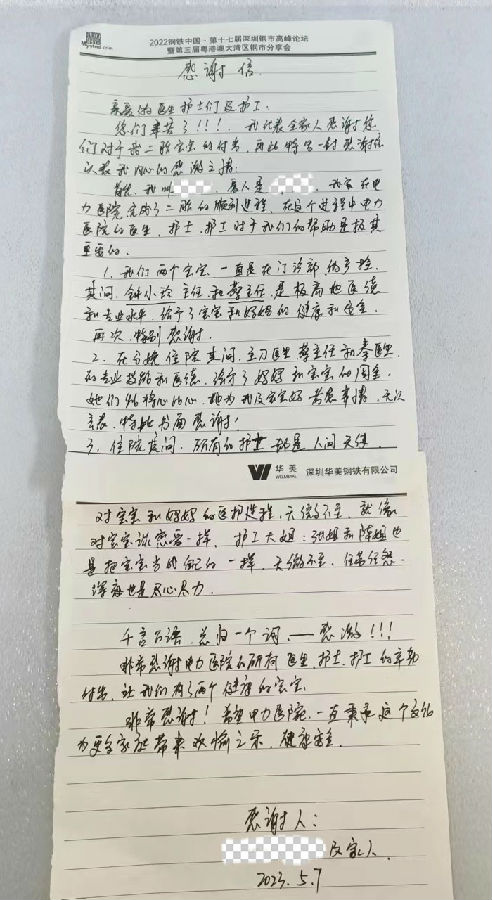 2022钢铁中国·第十七届深圳钢市高峰论坛
暨第三届粤港澳大湾区钢市分享会
感谢信
亲爱的医生护士们及护工
您们辛苦了!!! 我代表全家人感谢您
们对于我二胎宝宝的付出,再此特写一封感谢信
以表我内心的感激之情
首先,我叫 家人是 我家在电
力医院完成了二胎的顺利进程,在这个过程中电力
医院的医生,护士,护工对于我们的帮助是极其
重要的。
1、我们两个宝宝一直是在门诊部做产检,
其间,钟小玲主任和蔡主任,是极高地医德
和专业水平给予了宝宝和妈妈的健康和安全,
再次特别感谢。
2、在分娩住院其间,主刀医生蔡主任和秦医生
的专业技能和医德,给予了妈妈和宝宝的周全,
她们
特此书面感谢!
3、住院度间,所有的护士都是人间天使
华美 深圳华美钢铁有限公司
对宝宝和妈妈的医护过程,无微不至,就像
对宝宝 一样,护工大姐:张姐和陈姐也
是把宝宝当成自己的一样,无微不至,任劳任怨
深夜也是尽心尽力。
千言万语,总归一个词,——感激!!!
非常感谢电力医院的所有医生护士,护工的辛勤
付出,让我们有了两个健康的宝宝
非常感谢!希望电力医院,一直秉承这个文化
为更多家庭带来欢愉之乐,健康安全。
感谢人:
及家人
2023.5.7